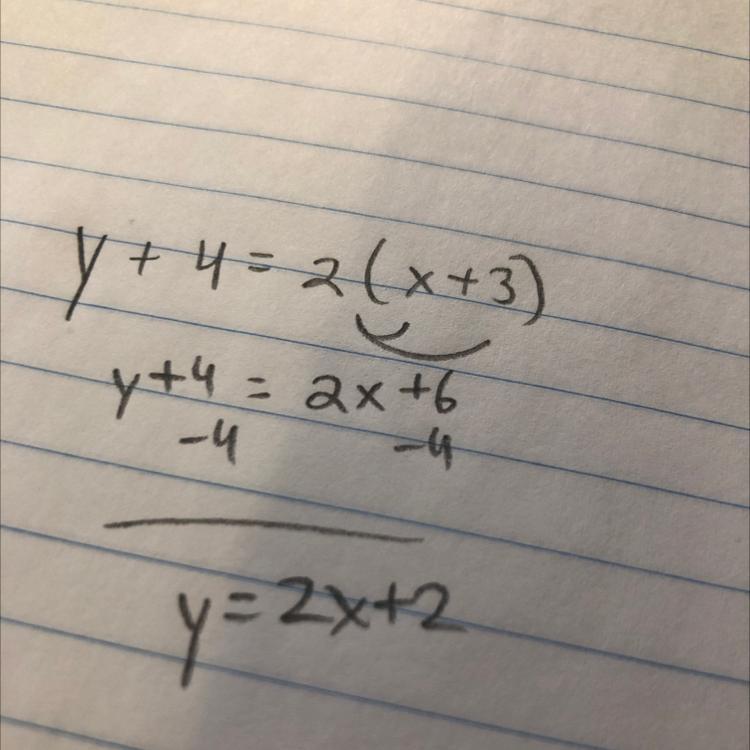 y + 4 = 2(x+3)
y+4 = 2x+6
-4 -4
y=2x+2